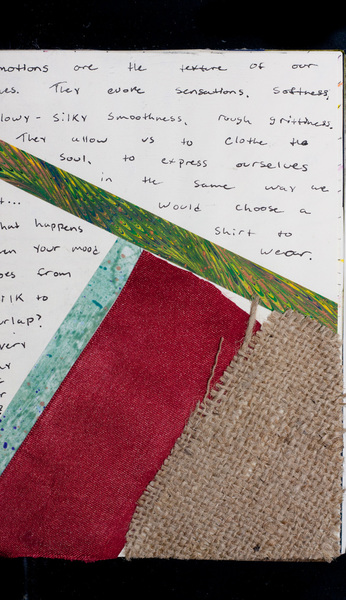 motions are the texture of our
es. They evoke sensations. Softness,
lowy - Silky smoothness, rough grittiness.
They allow us to clothe the
Soul, to express ourselves
in the same way we
t... would choose a
hat happens shirt to
en your mood wear.
oes from
ilk to
urlap?
very